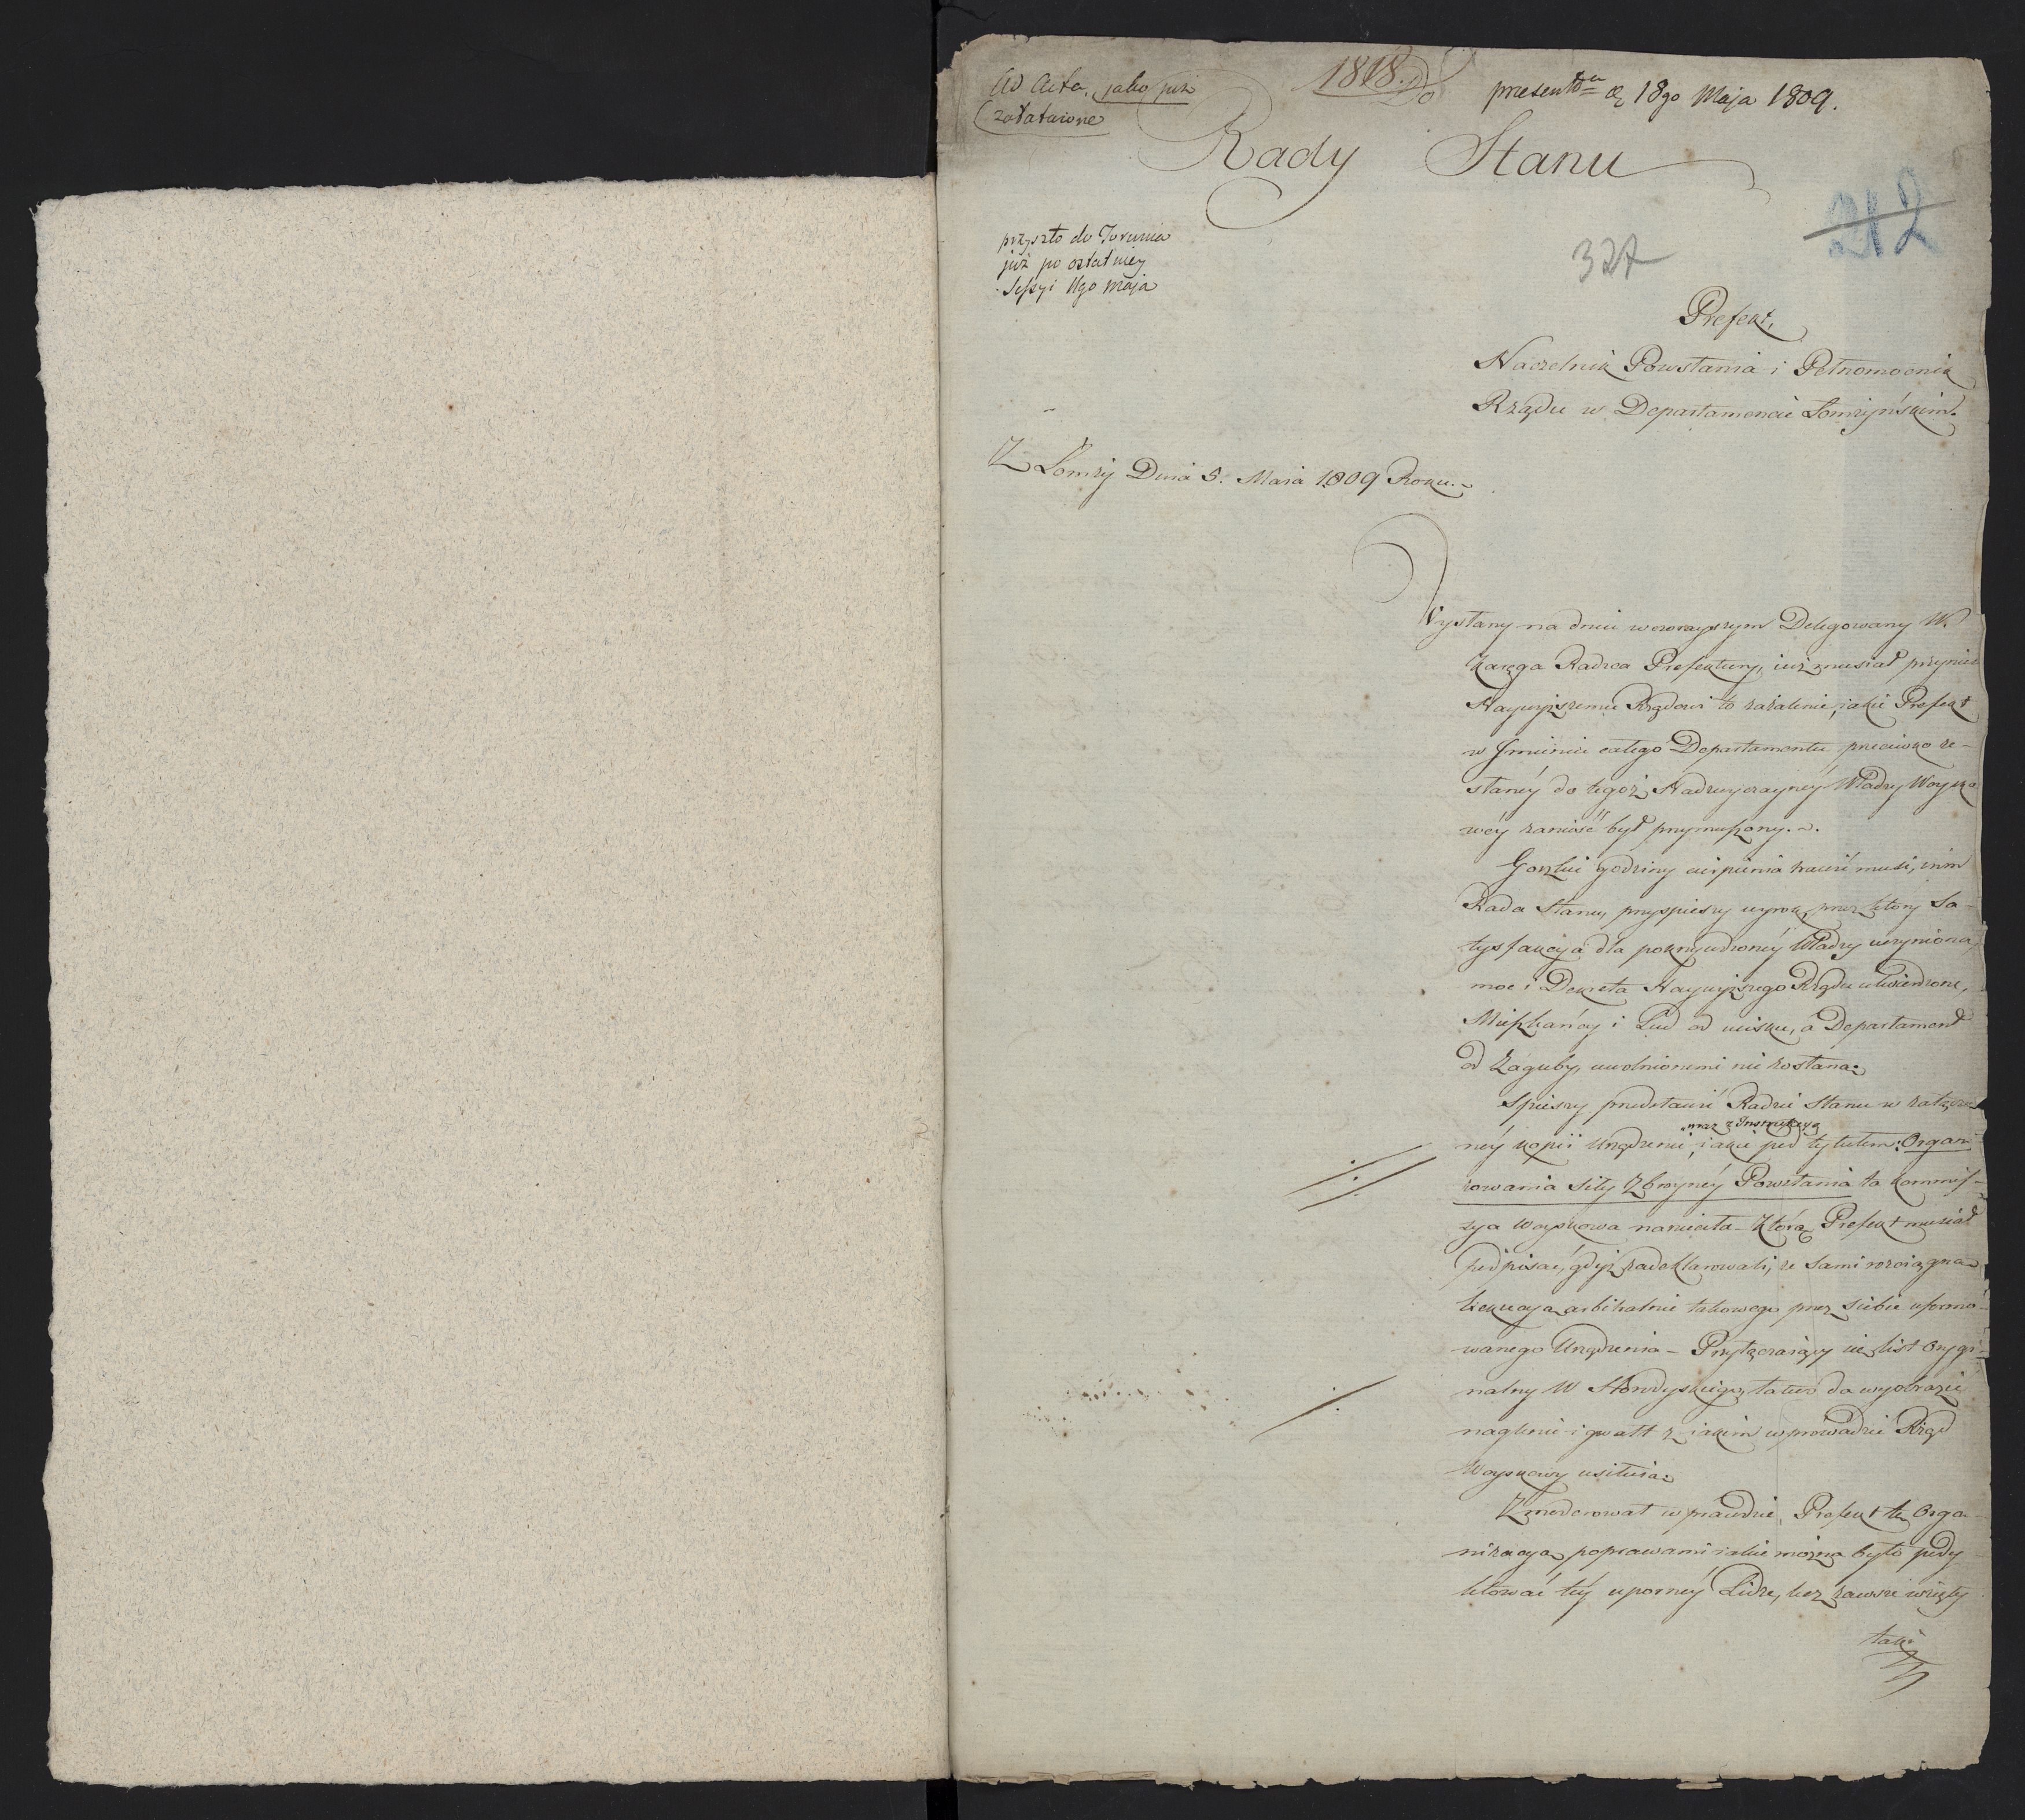 Ad Acta, jako już
załatwione
1818. Do
presento 18go Maja 1809.
Rady Stanu
212
327
przyszło do Torunia
już po ostatniey
Sessyi 11go Maja
Prefekt,
Naczelnik Powstania i Pełnomocnik
Rządu w Departamencie Łomżyńskim.
Z Łomży Dnia 5. Maia 1809 Roku.
Wysłany na dniu wczorayszym Delegowany W.
Radca Prefektury, iuż musiał przynieść
Naywyższemu Rządowi to zażalenie, iakie Prefekt
w Jmieniu całego Departamentu przeciwko ze-
słaney do tegoż Nadzwyczayney Władzy Woysko
wey zanieść był przymuszony.
Gorzkie godziny cierpienia trawić musi, nim
Rada Stanu, przyspieszy wyrok, przez który Sa-
tysfakcya dla pokrzywdzoney Władzy uczyniona,
moc i Dekreta Naywyższego Rządu utwierdzone,
Mieszkańcy i Lud od ucisku, a Departament
od Zaguby, uwolnionemi nie zostaną.
Spieszy przedstawić Radzie Stanu w załączo-
wraz z Instrukcyą
ney kopii Urządzenie, iakie pod tytułem: Organi
zowania Siły Zbroyney Powstania ta Kommis-
sya Woyskowa narzuciła – którą Prefekt musiał
podpisać, gdyż zadeklarowali, że Sami rozciągną
Exekucyą arbitralnie takowego przez siebie uformo-
wanego Urządzenia – Przyłączaiący się list Orygi-
nalny W łatwo da wyobrazić
naglenie i gwałt z iakim wprowadzić Rząd
Woyskowy usiłuie.
Zmoderował wprawdzie Prefekt tę Orga-
nizacyą poprawami iakie można było pody
ktować tey uporney Lidze, lecz zawsze wzięty
taki